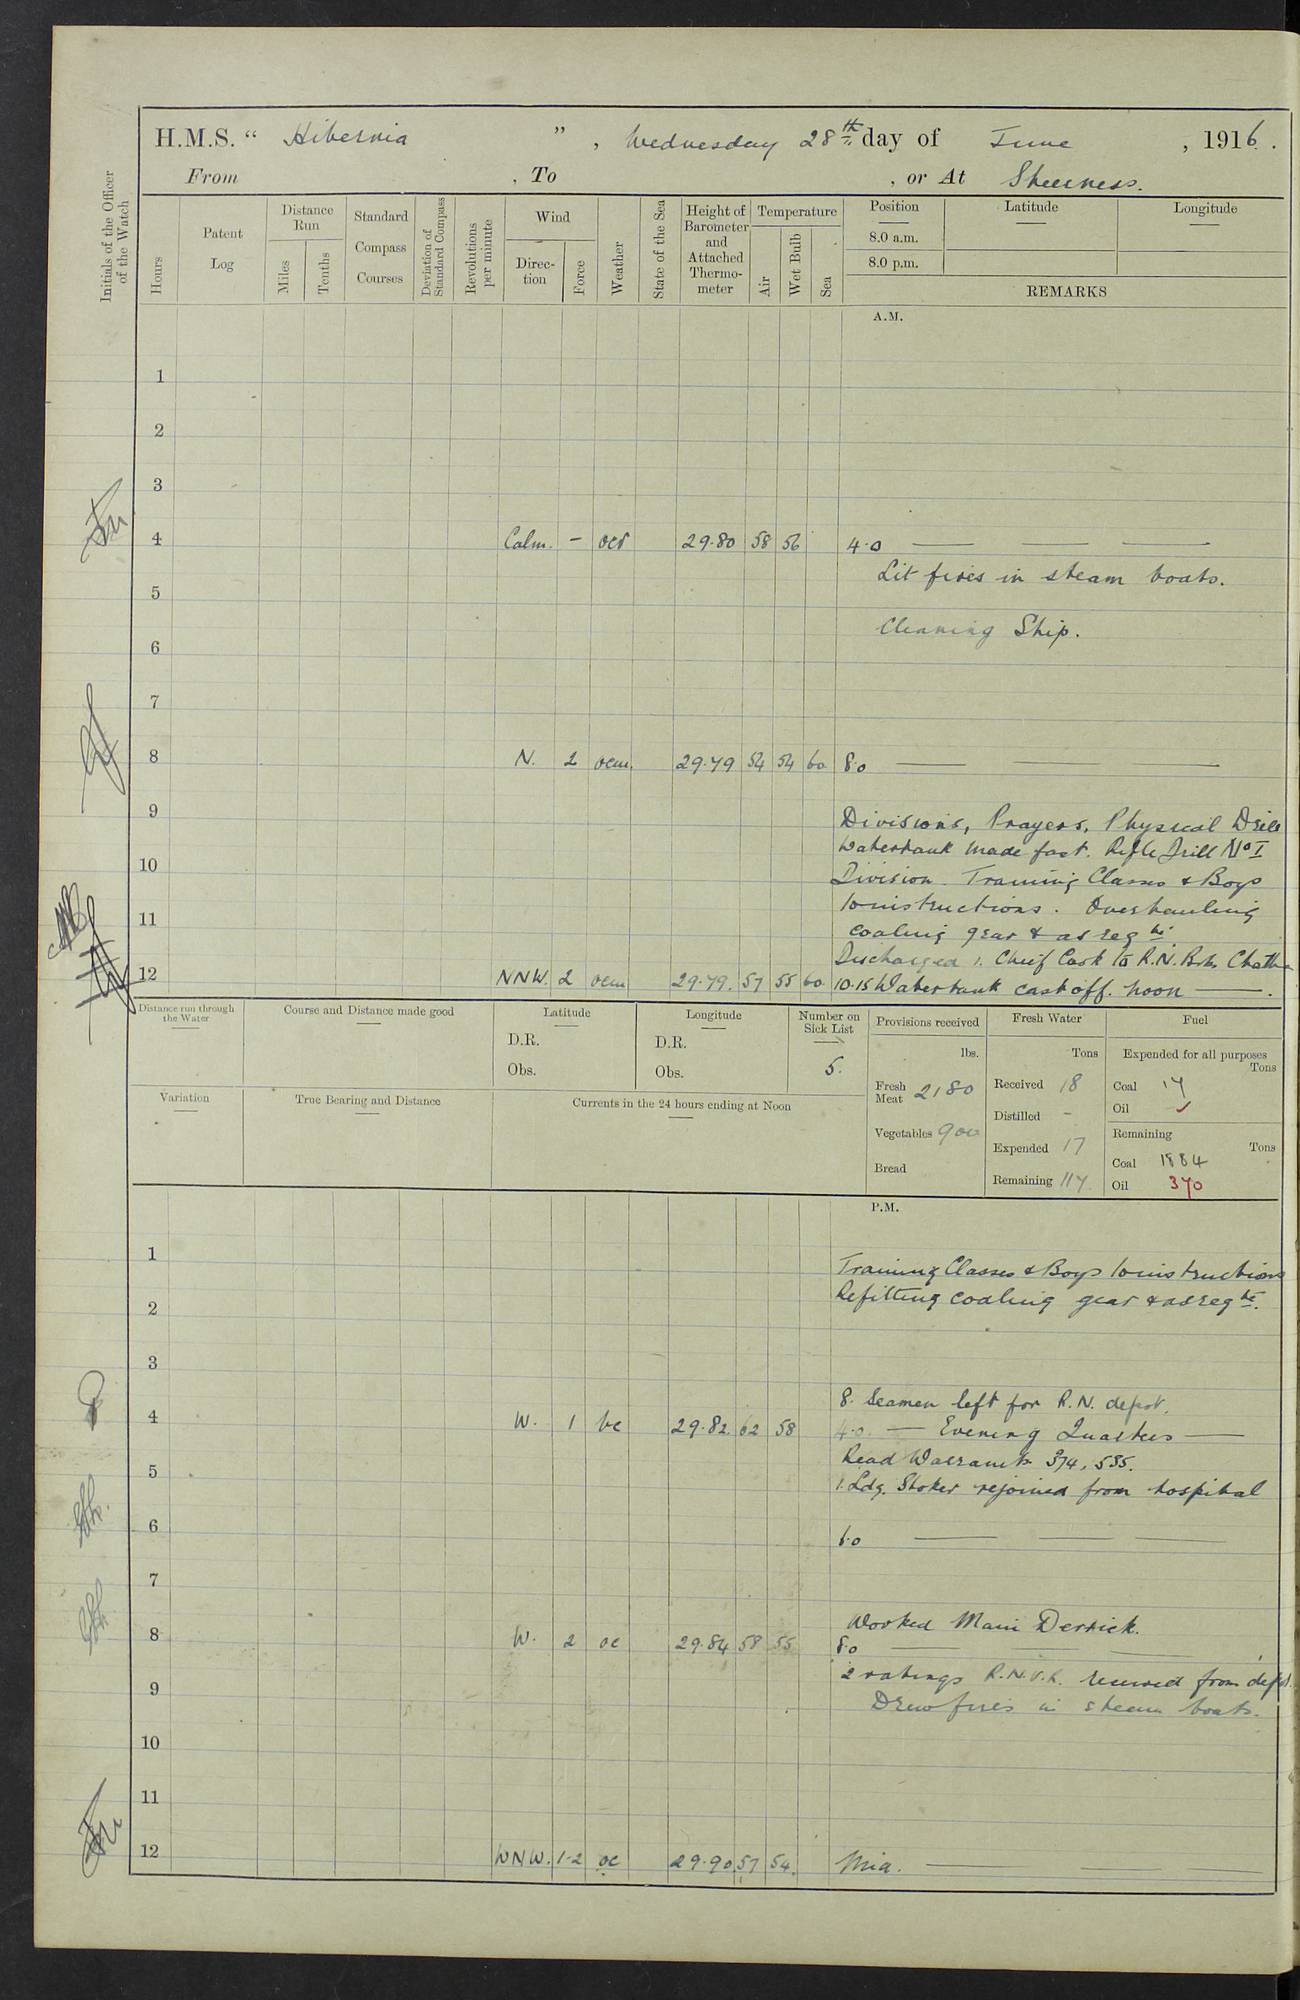 H.M.S. " Hibernia ", Wednesday 28th day of June, 1916.
From , To , or At Sheerness.
Initials of the Officer of the Watch
Hours
Patent Log
Distance Run
Miles
Tenths
Standard Compass Courses
Deviation of Standard Compass
Revolutions per minute
Wind
Direction
Force
Weather
State of the Sea
Height of Barometer and Attached Thermometer
Temperature
Air
Wet Bulb
Sea
Position
8.0 a.m.
8.0 p.m.
Latitude
Longitude
REMARKS
A.M.
1
2
3
4 Calm. - 29.80 58 56 4.0
Lit fires in steam boats.
5
Cleaning Ship.
6
7
8 N. 2 ocm. 29.79 54 54 60 8.0
9
Divisions, Prayers, Physical Drill
Watertank made fast. Rifle Drill No I
10
Division. Training Classes & Boys
to instructions. Overhauling
11
coaling gear & as reqte.
Discharged 1. Chief Cook to R.N. Bks Chatham
12 NNW. 2 ocm 29.79. 57 55 60 10.15 Watertank cast off. Noon
Distance run through the Water
Course and Distance made good
Latitude
D.R.
Obs.
Longitude
D.R.
Obs.
Number on Sick List
5.
Provisions received
lbs.
Fresh Meat 2180
Vegetables 900
Bread
Fresh Water
Tons
Received 18
Distilled -
Expended 17
Remaining 117
Fuel
Expended for all purposes
Tons
Coal 17
Oil ✓
Remaining
Tons
Coal 1884
Oil 370
Variation
True Bearing and Distance
Currents in the 24 hours ending at Noon
P.M.
1
Training Classes & Boys to instructions
2 Refitting coaling gear & as reqte.
3
8. Seamen left for R.N. depot.
4 W. 1 bc 29.82 62 58 4.0. Evening Quarters
Read Warrants 574, 535.
5
1. Ldg. Stoker rejoined from hospital
6
6.0
7
Worked Main Derrick.
8 W. 2 oc 29.84 58 55 8.0
2 ratings R.N.V.R. received from depot.
9
Drew fires in steam boats.
10
11
12 WNW. 1-2 oc 29.90 57 54. Mid.